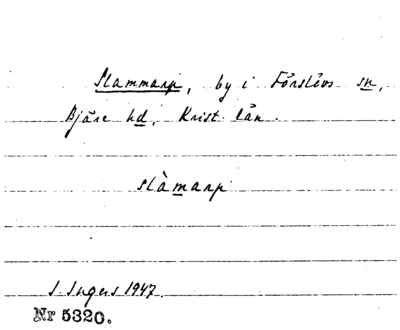 Slammarp, by i Förslövs sn,
Bjäre hd, Krist. län.
slàmarp
I. Ingers 1947.
Nr 5320.